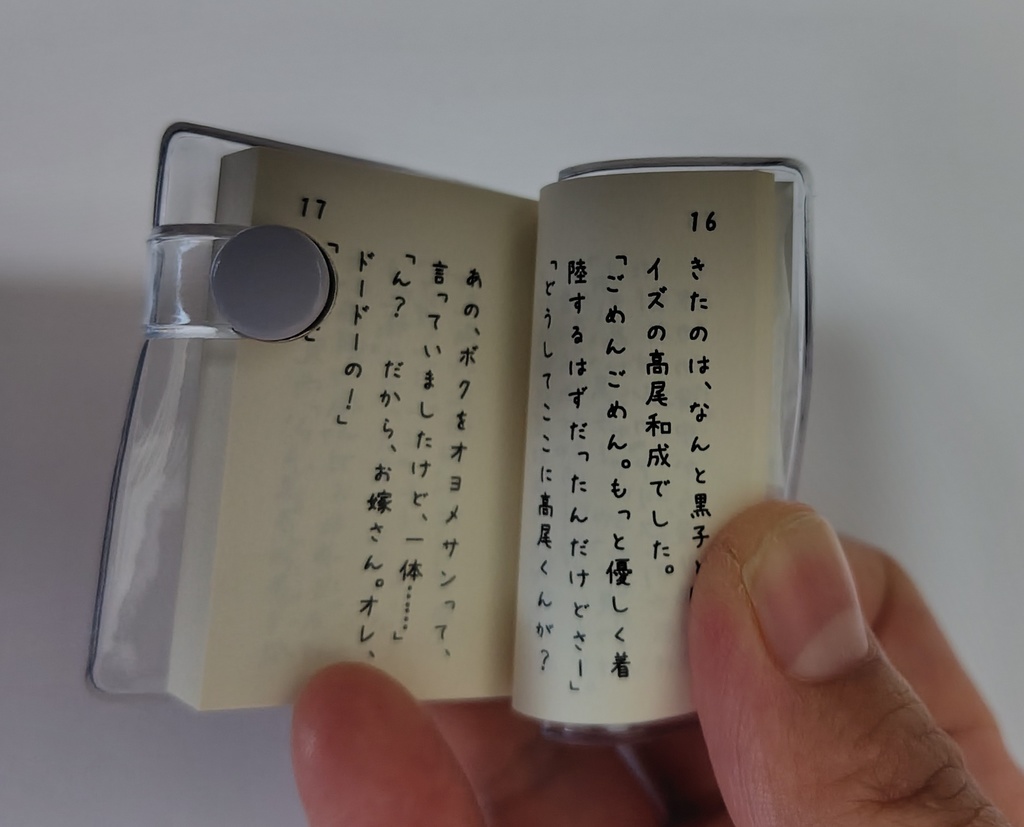 16
きたのは、なんと黒子と
イズの高尾和成でした。
「ごめんごめん。もっと優しく着
陸するはずだったんだけどさー」
「どうしてここに高尾くんが？
17
あの、ボクをオヨメサンって、
言っていましたけど、一体……」
「ん？　だから、お嫁さん。オレ、
ドードーの！」
「